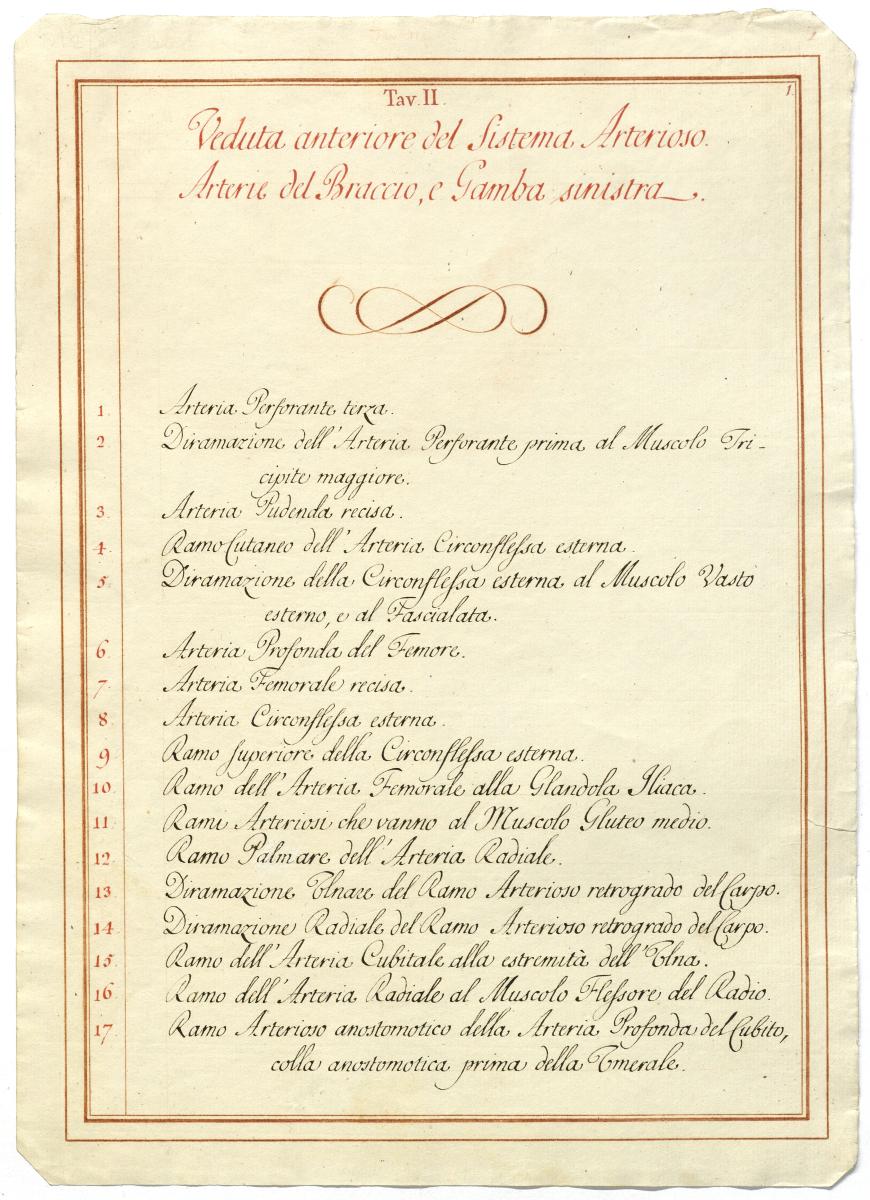 1.
Tav. II.
Veduta anteriore del Sistema Arterioso.
Arterie del Braccio, e Gamba sinistra.
1. Arteria Perforante terza.
2. Diramazione dell'Arteria Perforante prima al Muscolo Tri-
cipite maggiore.
3. Arteria Pudenda recisa.
4. Ramo Cutaneo dell'Arteria Circonflessa esterna.
5. Diramazione della Circonflessa esterna al Muscolo Vasto
esterno, e al Fascialata.
6. Arteria Profonda del Femore.
7. Arteria Femorale recisa.
8. Arteria Circonflessa esterna.
9. Ramo superiore della Circonflessa esterna.
10. Ramo dell'Arteria Femorale alla Glandola Iliaca.
11. Rami Arteriosi che vanno al Muscolo Gluteo medio.
12. Ramo Palmare dell'Arteria Radiale.
13. Diramazione Ulnare del Ramo Arterioso retrogrado del Carpo.
14. Diramazione Radiale del Ramo Arterioso retrogrado del Carpo.
15. Ramo dell'Arteria Cubitale alla estremità dell'Ulna.
16. Ramo dell'Arteria Radiale al Muscolo Flessore del Radio.
17. Ramo Arterioso anostomotico della Arteria Profonda del Cubito,
colla anostomotica prima della Umerale.